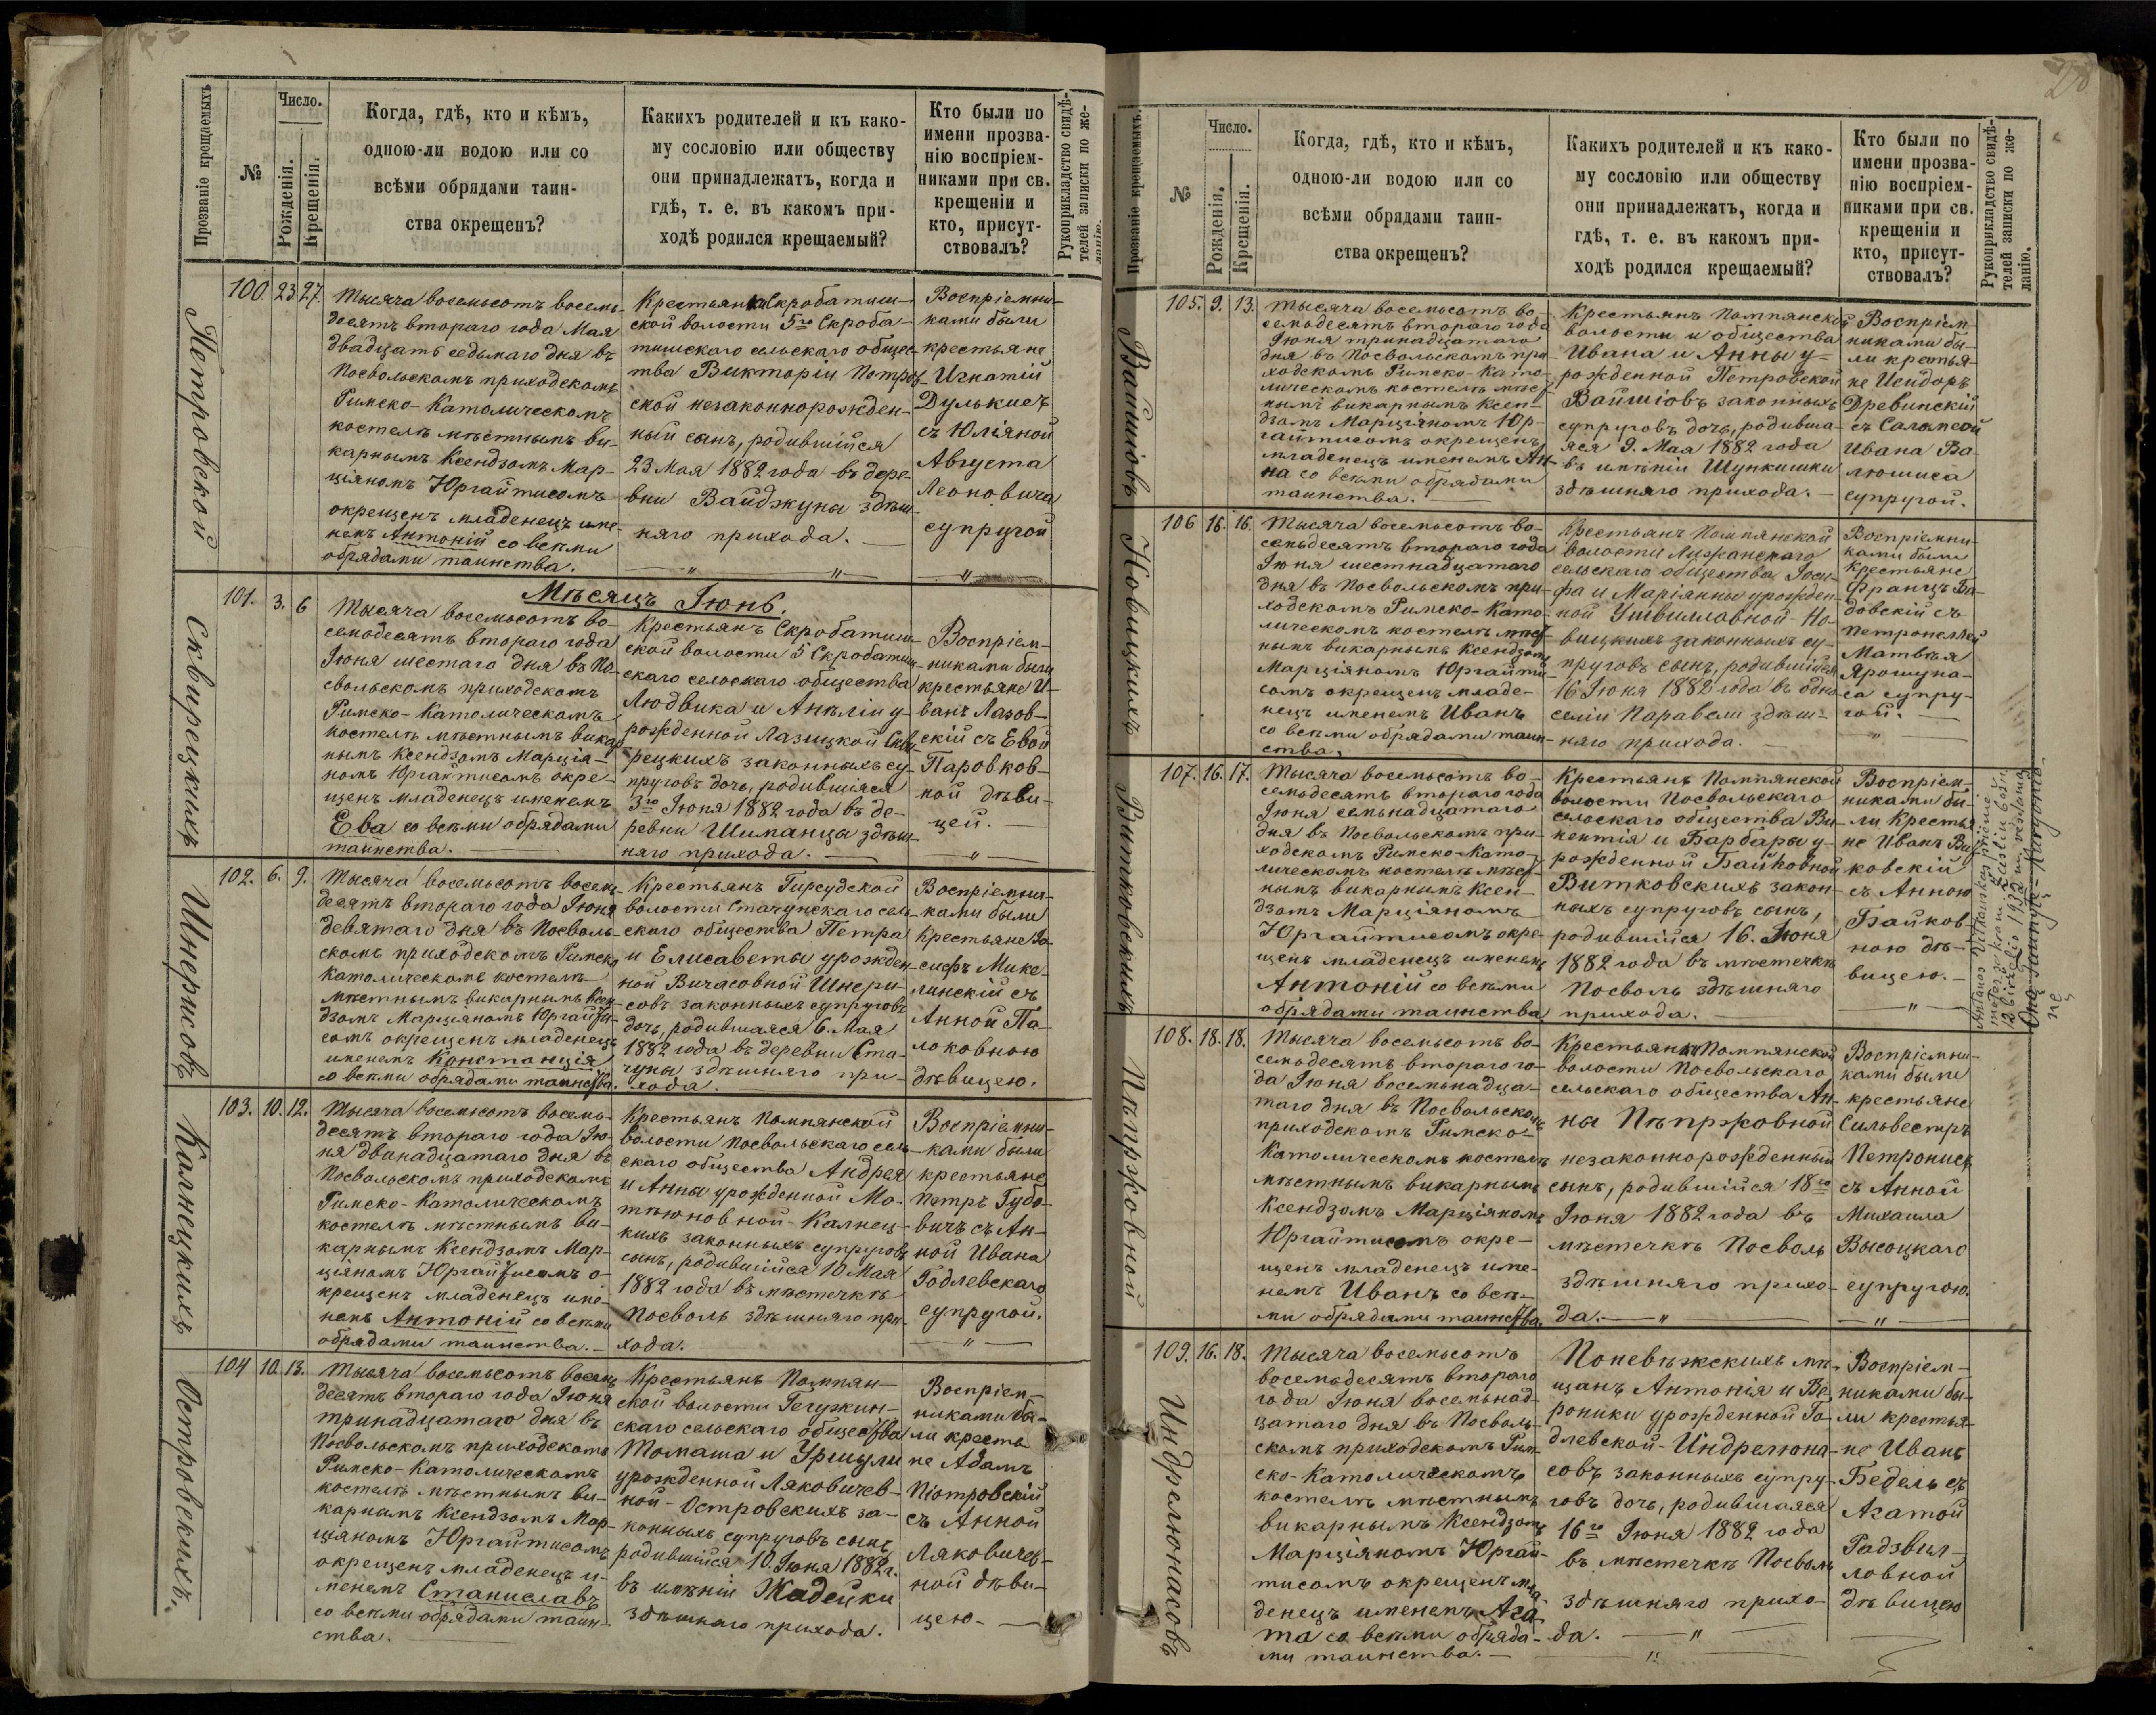 Прозваніе крещаемыхъ
№
Число.
Рожденія.
Крещенія.
Когда, гдѣ, кто и кѣмъ,
одною-ли водою или со
всѣми обрядами таин-
ства окрещенъ?
Какихъ родителей и къ како-
му сословію или обществу
они принадлежатъ, когда и
гдѣ, т. е. въ какомъ при-
ходѣ родился крещаемый?
Кто были по
имени прозва-
нію воспріем-
никами при св.
крещеніи и
кто, присут-
ствовалъ?
Рукоприкладство свидѣ-
телей записки по же-
ланію.
Петровской
100
23
27
Тысяча восемьсотъ восемь-
десятъ втораго года Мая
двадцать седьмаго дня въ
Посвольскомъ приходскомъ
Римско-Католическомъ
костелѣ мѣстнымъ ви-
карнымъ Ксендзомъ Мар-
ціяномъ Юргайтисомъ
окрещенъ младенецъ име-
немъ Антоній со всѣми
обрядами таинства.
Крестьянки Скробатиш-
ской волости 5го Скроба-
тишскаго сельскаго общес-
тва Викторіи Петров-
ской незаконнорожден-
ный сынъ, родившійся
23 Мая 1882 года въ дере-
вни Вайджуны здѣш-
няго прихода.
Воспріемни-
ками были
крестьяне
Игнатій
Дулькисъ
съ Юліяной
Августа
Леоновича
супругой
Мѣсяцъ Іюнь.
Сквирецкихъ
101.
3.
6
Тысяча восемьсотъ во-
семьдесятъ втораго года
Іюня шестаго дня въ По-
свольскомъ приходскомъ
Римско-Католическомъ
костелѣ мѣстнымъ викар-
нымъ Ксендзомъ Марція-
номъ Юргайтисомъ окре-
щенъ младенецъ именемъ
Ева со всѣми обрядами
таинства.
Крестьянъ Скробатиш-
ской волости 5 Скробатиш-
скаго сельскаго общества
Людвика и Анѣліи у-
рожденной Лазицкой Скви-
рецкихъ законныхъ су-
пруговъ дочь, родившаяся
3го Іюня 1882 года въ де-
ревни Шиманцы здѣш-
няго прихода.
Воспріем-
никами были
крестьяне И-
ванъ Лазов-
скій съ Евой
Паровков-
ной дѣви-
цей.
Шнерисовъ
102.
6.
9.
Тысяча восемьсотъ восемь-
десятъ втораго года Іюня
девятаго дня въ Посволь-
скомъ приходскомъ Римско-
Католическомъ костелѣ
мѣстнымъ викарнымъ Ксен-
дзомъ Марціяномъ Юргайти-
сомъ окрещенъ младенецъ
именемъ Констанція
со всѣми обрядами таинства.
Крестьянъ Гирсудской
волости Стачунскаго сель-
скаго общества Петра
и Елисаветы урожден-
ной Вичасовной Шнери-
совъ законныхъ супруговъ
дочь, родившаяся 6. Мая
1882 года въ деревни Ста-
чуны здѣшняго при-
хода.
Воспріемни-
ками были
Крестьяне Іо-
сифъ Мике-
линскій съ
Анной Па-
локовною
дѣвицею.
Калнецкихъ
103.
10.
12.
Тысяча восемьсотъ восемь-
десятъ втораго года Ію-
ня двѣнадцатаго дня въ
Посвольскомъ приходскомъ
Римско-Католическомъ
костелѣ мѣстнымъ ви-
карнымъ Ксендзомъ Мар-
ціяномъ Юргайтисомъ о-
крещенъ младенецъ име-
немъ Антоній со всѣми
обрядами таинства.
Крестьянъ Помпянской
волости Посвольскаго сель-
скаго общества Андрея
и Анны урожденной Ма-
тѣюновной-Калнец-
кихъ законныхъ супруговъ
сынъ, родившійся 10 Мая
1882 года въ мѣстечкѣ
Посволь здѣшняго при-
хода.
Воспріемни-
ками были
крестьяне
Петръ Гудо-
вичъ съ Ан-
ной Ивана
Годлевскаго
супругой.
Островскихъ.
104
10.
13.
Тысяча восемьсотъ восемь-
десятъ втораго года Іюня
тринадцатаго дня въ
Посвольскомъ приходскомъ
Римско-Католическомъ
костелѣ мѣстнымъ ви-
карнымъ Ксендзомъ Мар-
ціяномъ Юргайтисомъ
окрещенъ младенецъ и-
менемъ Станиславъ
со всѣми обрядами таин-
ства.
Крестьянъ Помпян-
ской волости Гегужин-
скаго сельскаго общества
Томаша и Уршули
урожденной Ляковичев-
ной-Островскихъ за-
конныхъ супруговъ сынъ,
родившійся 10. Іюня 1882 г.
въ имѣніи Жадейки
здѣшняго прихода.
Воспріем-
никами бы-
ли крестья-
не Адамъ
Піотровскій
съ Анной
Ляковичев-
ной дѣви-
цею.
28
Прозваніе крещаемыхъ.
№
Число.
Рожденія.
Крещенія.
Когда, гдѣ, кто и кѣмъ,
одною-ли водою или со
всѣми обрядами таин-
ства окрещенъ?
Какихъ родителей и къ како-
му сословію или обществу
они принадлежатъ, когда и
гдѣ, т. е. въ какомъ при-
ходѣ родился крещаемый?
Кто были по
имени прозва-
нію воспріем-
никами при св.
крещеніи и
кто, присут-
ствовалъ?
Рукоприкладство свидѣ-
телей записки по же-
ланію.
Вайшіовъ
105.
9.
13.
Тысяча восемьсотъ во-
семьдесятъ втораго года
Іюня тринадцатаго
дня въ Посвольскомъ при-
ходскомъ Римско-Като-
лическомъ костелѣ мѣст-
нымъ викарнымъ Ксен-
дзомъ Марціяномъ Юр-
гайтисомъ окрещенъ
младенецъ именемъ Ан-
на со всѣми обрядами
таинства.
Крестьянъ Помпянской
волости и общества
Ивана и Анны у-
рожденной Петровской
Вайшіовъ законныхъ
супруговъ дочь, родивша-
яся 9. Мая 1882 года
въ имѣніи Шункишки
здѣшняго прихода.
Воспріем-
никами бы-
ли крестья-
не Исидоръ
Древинскій
съ Саломеей
Ивана Ва-
люшиса
супругой.
Новицкихъ
106
16.
16.
Тысяча восемьсотъ во-
семьдесятъ втораго года
Іюня шестнадцатаго
дня въ Посвольскомъ при-
ходскомъ Римско-Като-
лическомъ костелѣ мѣст-
нымъ викарнымъ Ксендзомъ
Марціяномъ Юргайти-
сомъ окрещенъ младе-
нецъ именемъ Иванъ
со всѣми обрядами таин-
ства.
Крестьянъ Помпянской
волости Лижанскаго
сельскаго общества Іоси-
фа и Маріянны урожден-
ной Умвилловной-Но-
вицкихъ законныхъ су-
пруговъ сынъ, родившійся
16 Іюня 1882 года въ одно-
селіи Паравели здѣш-
няго прихода.
Воспріемни-
ками были
Крестьяне
Францъ Ба-
довскій съ
Петронеллей
Матвѣя
Ярошуна-
са супру-
гой.
Витковскихъ
107.
16.
17.
Тысяча восемьсотъ во-
семьдесятъ втораго года
Іюня семьнадцатаго
дня въ Посвольскомъ при-
ходскомъ Римско-Като-
лическомъ костелѣ мѣст-
нымъ викарнымъ Ксен-
дзомъ Марціяномъ
Юргайтисомъ окре-
щенъ младенецъ именемъ
Антоній со всѣми
обрядами таинства
Крестьянъ Помпянской
волости Посвольскаго
сельскаго общества Ви-
кентія и Барбары у-
рожденной Байковной
Витковскихъ закон-
ныхъ супруговъ сынъ,
родившійся 16. Іюня
1882 года въ мѣстечкѣ
Посволь здѣшняго
прихода.
Воспріем-
никами бы-
ли Крестья-
не Иванъ Вит-
ковскій
съ Анною
Байков-
ною дѣ-
вицею.
Antanas Vitkauskas priėmė
Пѣпржовной
108.
18.
18.
Тысяча восемьсотъ во-
семьдесятъ втораго го-
да Іюня восемьнадца-
таго дня въ Посвольскомъ
приходскомъ Римско-
Католическомъ костелѣ
мѣстнымъ викарнымъ
Ксендзомъ Марціяномъ
Юргайтисомъ окре-
щенъ младенецъ име-
немъ Иванъ со всѣ-
ми обрядами таинства.
Крестьянки Помпянской
волости Посвольскаго
сельскаго общества Ан-
ны Пѣпржовной
незаконнорожденный
сынъ, родившійся 18го
Іюня 1882 года въ
мѣстечкѣ Посволь
здѣшняго прихо-
да.
Воспріемни-
ками были
крестьяне
Сильвестръ
Петронисъ
съ Анной
Михаила
Высоцкаго
супругою.
Индрелюнасовъ
109.
16.
18.
Тысяча восемьсотъ
восемьдесятъ втораго
года Іюня восемьнад-
цатаго дня въ Посволь-
скомъ приходскомъ Рим-
ско-Католическомъ
костелѣ мѣстнымъ
викарнымъ Ксендзомъ
Марціяномъ Юргай-
тисомъ окрещенъ мла-
денецъ именемъ Ага-
та со всѣми обряда-
ми таинства.
Поневѣжскихъ мѣ-
щанъ Антонія и Ве-
роники урожденной Го-
длевской-Индрелюна-
совъ законныхъ супру-
говъ дочь, родившаяся
16го Іюня 1882 года
въ мѣстечкѣ Посволь
здѣшняго прихо-
да.
Воспріем-
никами бы-
ли крестья-
не Иванъ
Бедель съ
Агатой
Радзвил-
ловной
дѣвицею